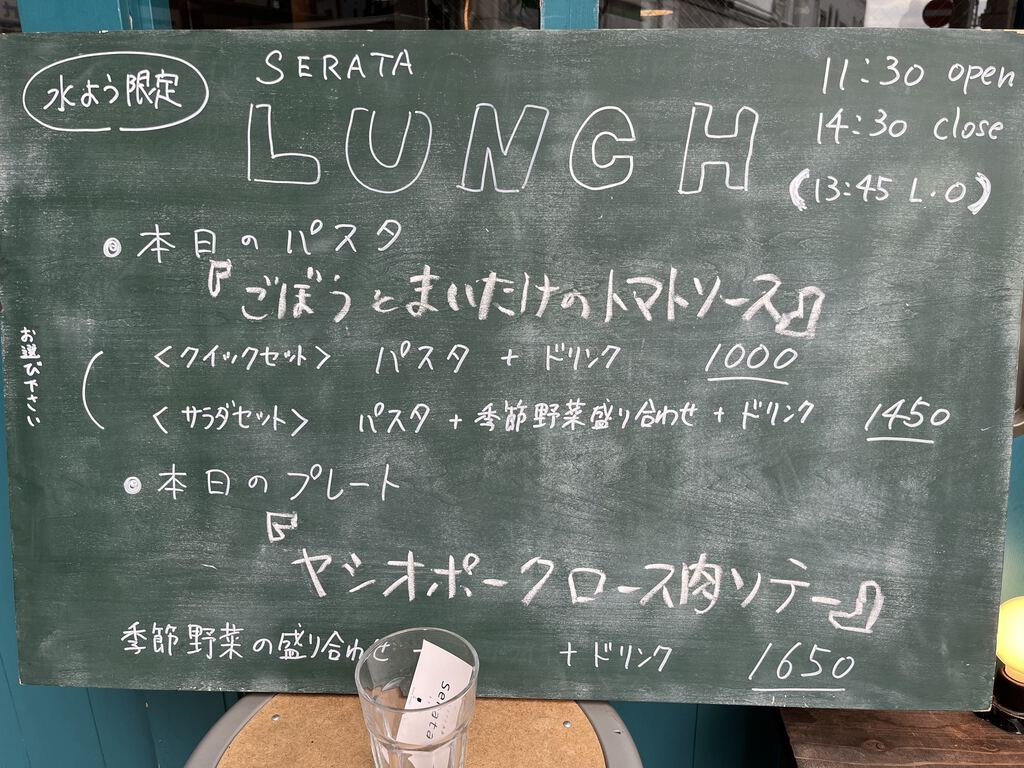 水よう限定
SERATA
LUNCH
11:30 open
14:30 close
(13:45 L.O)
本日のパスタ
『ごぼうとまいたけのトマトソース』
お選び下さい
<クイックセット> パスタ + ドリンク 1000
<サラダセット> パスタ + 季節野菜盛り合わせ + ドリンク 1450
本日のプレート
『ヤシオポークロース肉ソテー』
季節野菜の盛り合わせ + ドリンク 1650
serata